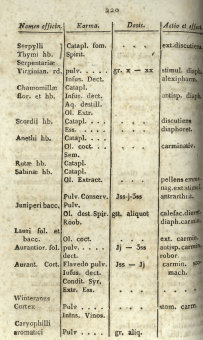 220
Nomen officin. Forma. Dosis. Actio et effect.
Serpylli Catapl. fom. . . . ext. discutiens
Thymi hb. Spirit. . . .
Serpentariæ
Virginian. rd. pulv. . . . gr. x — xx stimul. diaph.
Infus. Dect. alexipharm.
Chamomillæ Catapl.
flor. et hb. Infus. dect. . . . antisp. diaph.
Aq. destill.
Ol. Extr.
Scordii hb. Catapl. . . . discutiens
Ess. . . . diaphoret.
Anethi hb. Catapl. . . .
Ol. coct. . . . carminativ.
Sem.
Rutæ hb. Catapl.
Sabinæ hb. Catapl.
Ol. Extract. pellens emme-
nag. ext. stimul.
Pulv. Conserv. antarthr.
Juniperi bacc. Pulv.
Ol. dest. Spir. gtt. aliquot calefac. diuret.
Roob. diaph. carmin.
Lauri fol. et
bacc. Ol. coct. ext. carmin.
Aurantior. fol. pulv. . . . antisp. carmin.
dect. robor.
Aurant. Cort. Flavedo pulv. carmin. sto-
Infus. dect. mach.
Condit. Syr.
Extr. Ess.
Winteranus
Cortex Pulv . . . stom. carm.
Infus. Vinos.
Caryophilli
aromatici Pulv . . . gr. aliq.